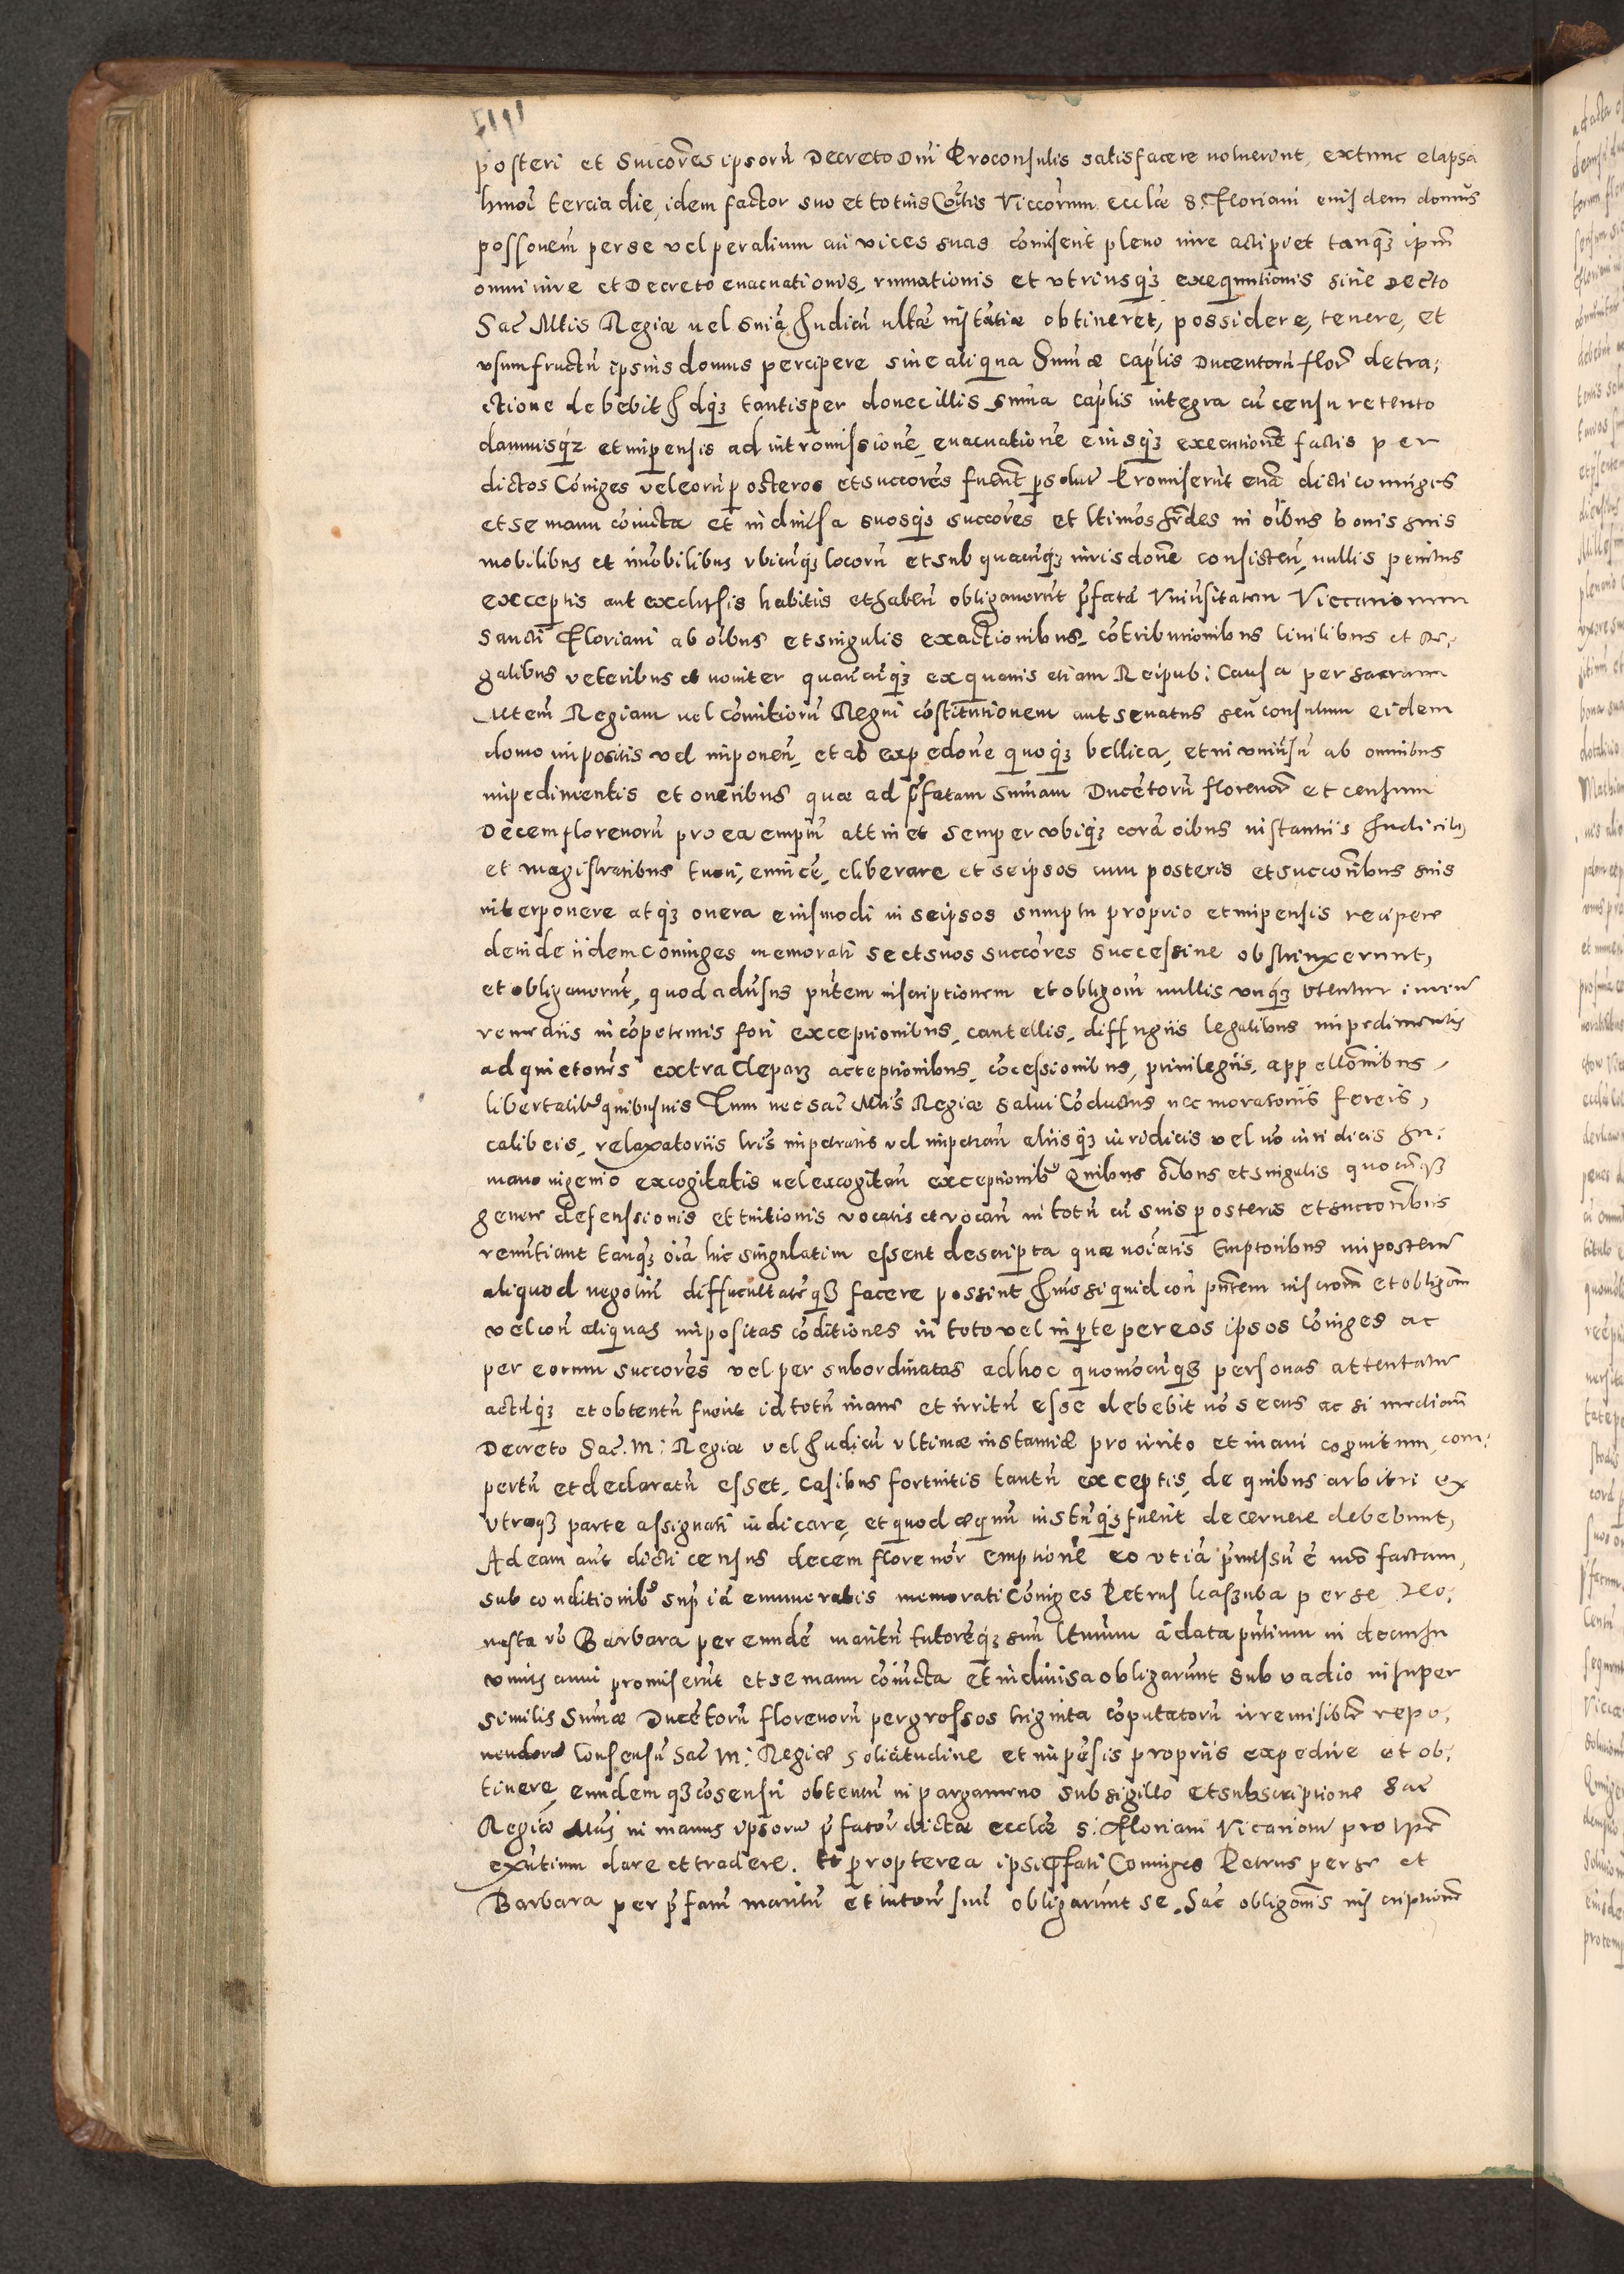 posteri et Succores ipsorū Decreto Dni Proconsulis satisfacere noluerint, extunc elapsa
hmoi tercia die, idem factor suo et totius Cōitis Viccorum ecclæ S. Floriani eiusdem domus
possonem per se vel per alium cui vices suas comiserit pleno iure acciperet tanq̃ ipm
omni iure et Decreto evacuationis, rumationis et utriusq; exequutionis sine decto
Sac Mtis Regiæ vel snia Iudicū ultæ instātiæ obtineret, possidere, tenere, et
usumfructū ipsius domus percipere sine aliqua Sumæ caplis Ducentorū flor detra,
ctione debebit Idq; tantisper donec illis suma caplis integra cū censu retento
damnisq; et impensis ad intromissionē evacuationē eiusq; executionē factis per
dictos Cōniges vel eorū posteros et succores fuerit psoluta Promiserūt enā dicti coniuges
et se manu cōiuncta et indivisa suosq; succores et ltimos hrdes in oibus bonis suis
mobilibus et imobilibus ubicūq; locorū et sub quacūq; iurisdone consisteñ, nullis penitus
exceptis aut exclusis habitis et habeñ obligaverūt pfatā Univsitatem Viccariorum
Sancti Floriani ab oibus et singulis exactionibus, cōtribucionibus Civilibus et Re,
galibus veteribus et noviter quacūq; ex quavis etiam Reipub: causa per sacram
Mtem Regiam vel comitiorū Regni cōstitutionem aut senatus seu consulum eidem
domo impositis vel imponeñ, et ab expedone quoq; bellica, et in univsū ab omnibus
impedimentis et oneribus quæ ad pfatam Sumam Ducētorū florenor et censum
Decem florenorū pro ea emptū attinet semper ubiq; corā oibus instantiis Iudicibus
et magistratibus tueri, evincē, eliberare et seipsos cum posteris et succoribus suis
interponere atq; onera eiusmodi in seipsos sumptu proprio et impensis recipere
deinde iidem Coniuges memorati se et suos succores successive obstrinxerunt,
et obligaverūt, quod advsus pntem inscriptionem et obligom nullis unq̃ utentur iuriū
remediis incōpetentis fori exceptionibus, cautellis, diffugiis legalibus impedimentis
ad quietoris extra Clepars acceptionibus, cōcessionibus, privilegiis, appellonibus,
libertatibus quibusvis Tum nec sac Mtis Regiæ salvi Cōductus nec moratoriis fereis,
calibeis, relaxatoriis lris impetratis vel impetrañ aliisq; iuridicis vel nō iuridicis hu,
mano ingenio excogitatis vel excogitañ exceptionib Quibus oibus et singulis quocūq;
genere defensionis et tuitionis vocatis et vocañ in totū cū suis posteris et succoribus
renūtiant tanq̃ oia hic singulatim essent descripta quæ noiatis Emptoribus in posterū
aliquod negotiū difficultateq; facere possint Imo si quid con pntem inscrom et obligom
vel con aliquas impositas cōditiones in toto vel in pte per eos ipsos cōniges ac
per eorum succores vel per subordinatas ad hoc quomocūq; personas attentatū
actūq; et obtentū fuerit id totū inane et irritū esse debebit nō secus ac si mediañ
Decreto Sac. M: Regiæ vel Iudicū ultimæ instantiæ pro irrito et inani cognitum, com:
pertū et declaratū esset, casibus fortuitis tantū exceptis, de quibus arbitri ex
utraq; parte assignati iudicare, et quod æquū iustūq; fuerit decernere debebunt,
Ad eam aut dicti census decem florenor emptionē eo ut iā pmissū ē mō factam,
sub conditionib sup iā enumeratis memorati Cōniges Petrus Kaszuba per se Ho:
nesta vo Barbara per eundē maritū tutoreq; suū ltimum ā data pntium in decursu
unius anni promiserūt et se manu cōiuncta et indivisa obligarunt sub vadio insuper
similis Sumæ Ducētorū florenorū per grossos triginta cōputatorū irremisiblr repo,
nendore Consensū Sac M: Regiæ solicitudine et impēsis propriis expedire et ob:
tinere, eundemq; cōsensū obtentū in pargameno sub sigillo et subscriptione Sac
Regiæ Mtis in manus ipsorū pfator dictæ ecclæ S. Floriani Vicarior pro tpre
exūtium dare et tradere. Et propterea ipsi pfati Coniuges Petrus per se et
Barbara per pfatū maritū et tutorē suū obligarunt se. Hac obligonis inscriptione